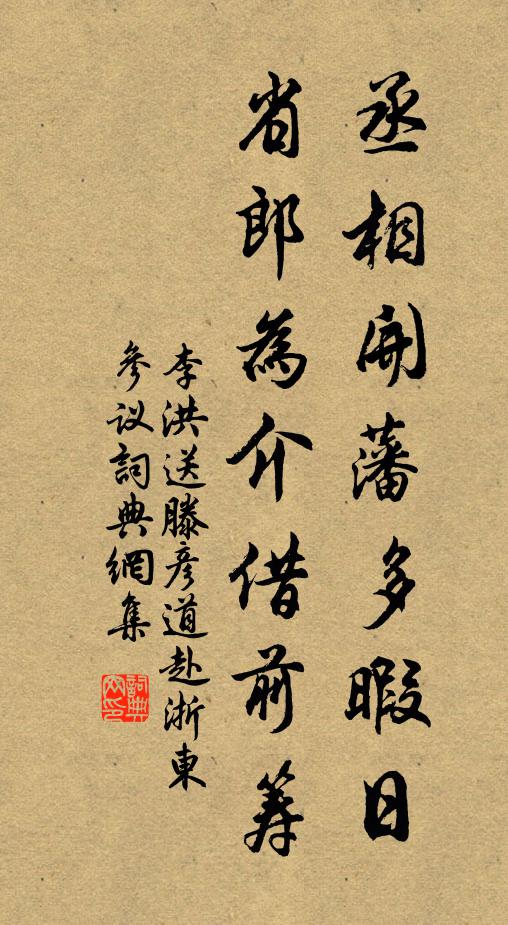 丞相開藩多暇日
省郎為介借前籌
李洪送滕彥道赴浙東
參议詞典網集
詞典
网印